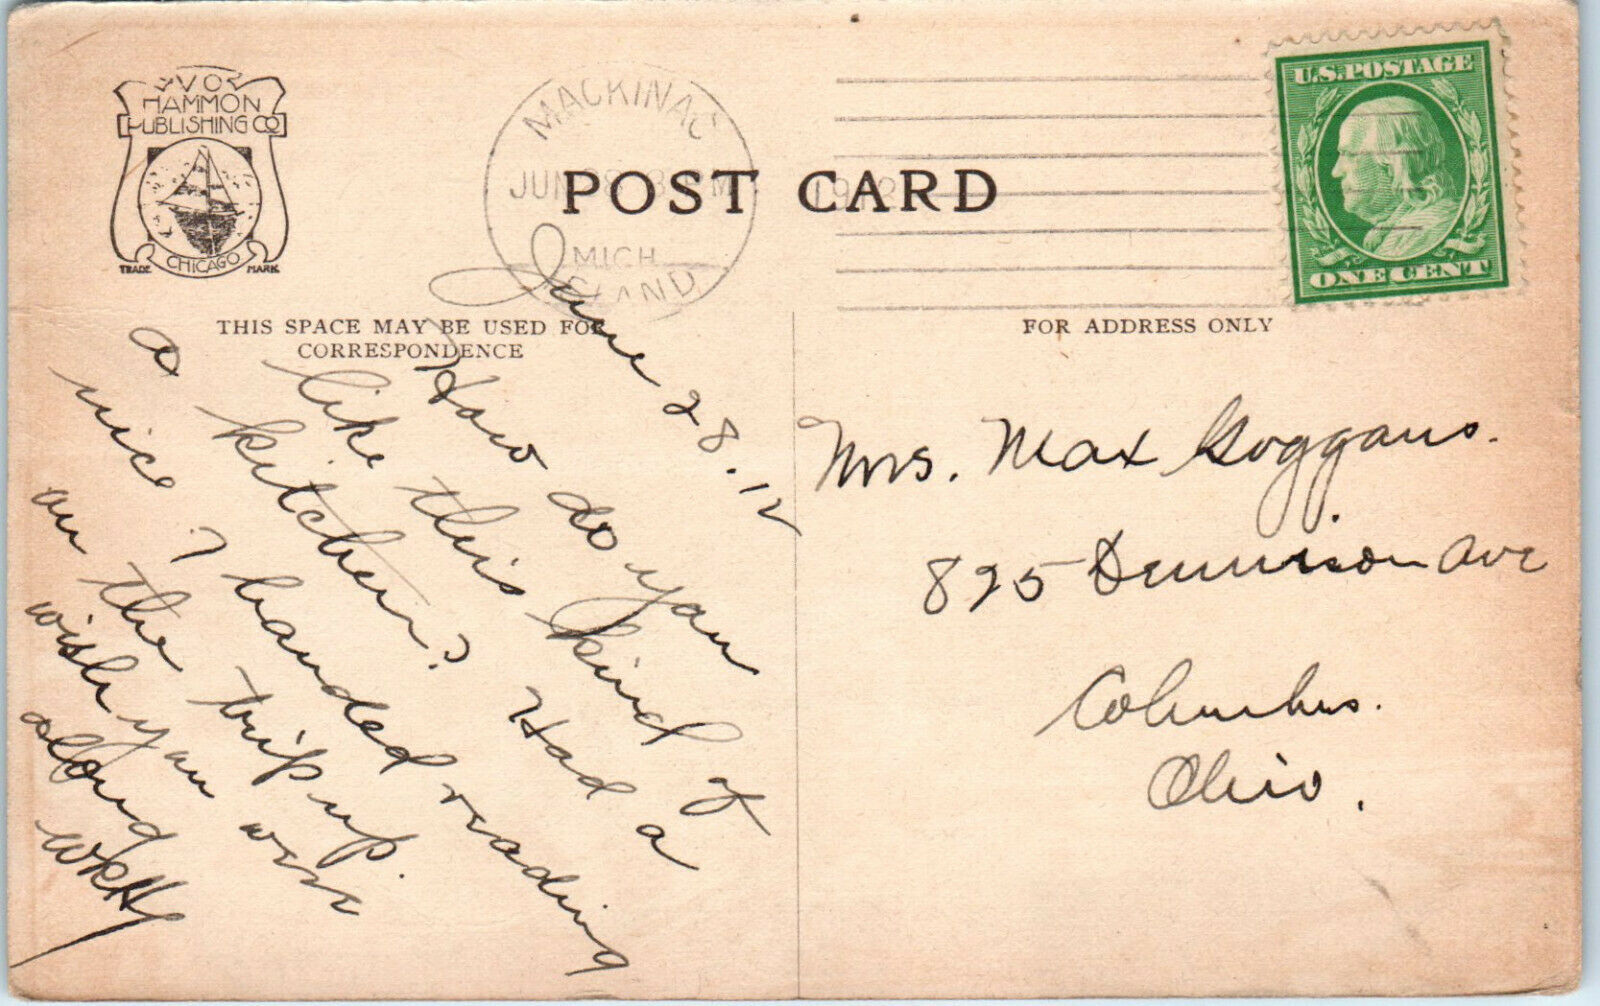 V O
HAMMON
PUBLISHING CO
CHICAGO
TRADE MARK
MACKINAC
JUN 28 8 M
1912
MICH
ISLAND
POST CARD
U.S. POSTAGE
ONE CENT
THIS SPACE MAY BE USED FOR
CORRESPONDENCE
FOR ADDRESS ONLY
June 28. 12
How do you
like this kind of
a kitchen? Had a
nice 7 handed reading
on the trip up.
wish you were
along
WRH
Mrs. Max Goggans.
825 Dennison Ave
Columbus.
Ohio.